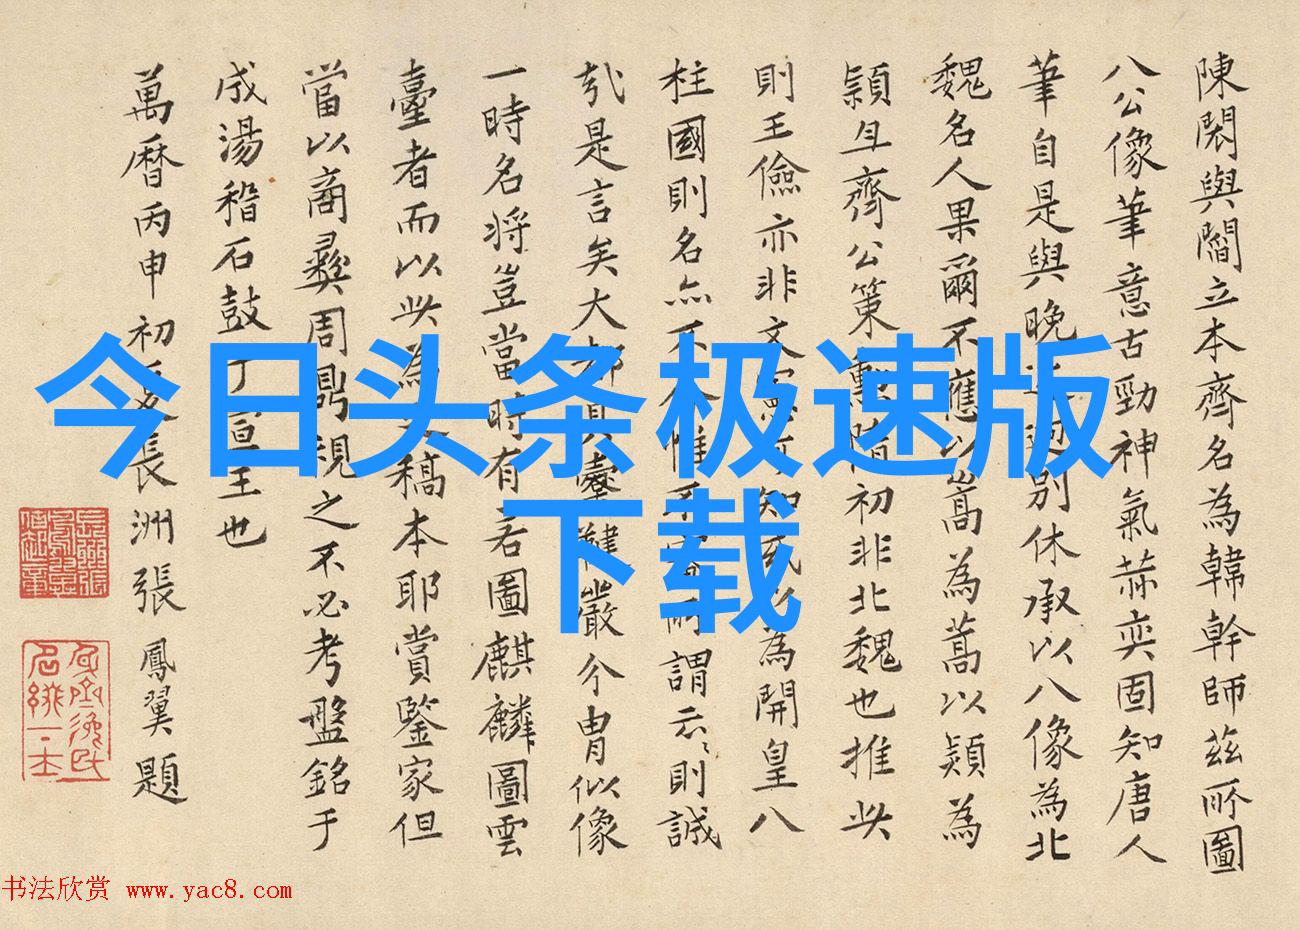 陳閎與閻立本齊名為韓幹師茲所圖
八公像筆意古勁神氣赫奕固知唐人
筆自是與晚別休承以八像為北
魏名人果爾不應以嵩為蒿以熲為
穎且齊公策勳隋初非北魏也推此
則王儉亦非文可知或以為開皇八
柱國則名亦不惟不謂云〻則誠
哉是言矣大都具櫜鞬嚴介冑似像
一時名將豈當時有若圖麒麟圖雲
臺者而以此為稿本耶賞鑒家但
當以商彝周鼎視之不必考盤銘于
成湯稽石鼓于宣王也
萬曆丙申初夏長洲張鳳翼題
今日头条极速版
下载
书法欣赏 www.yac8.com